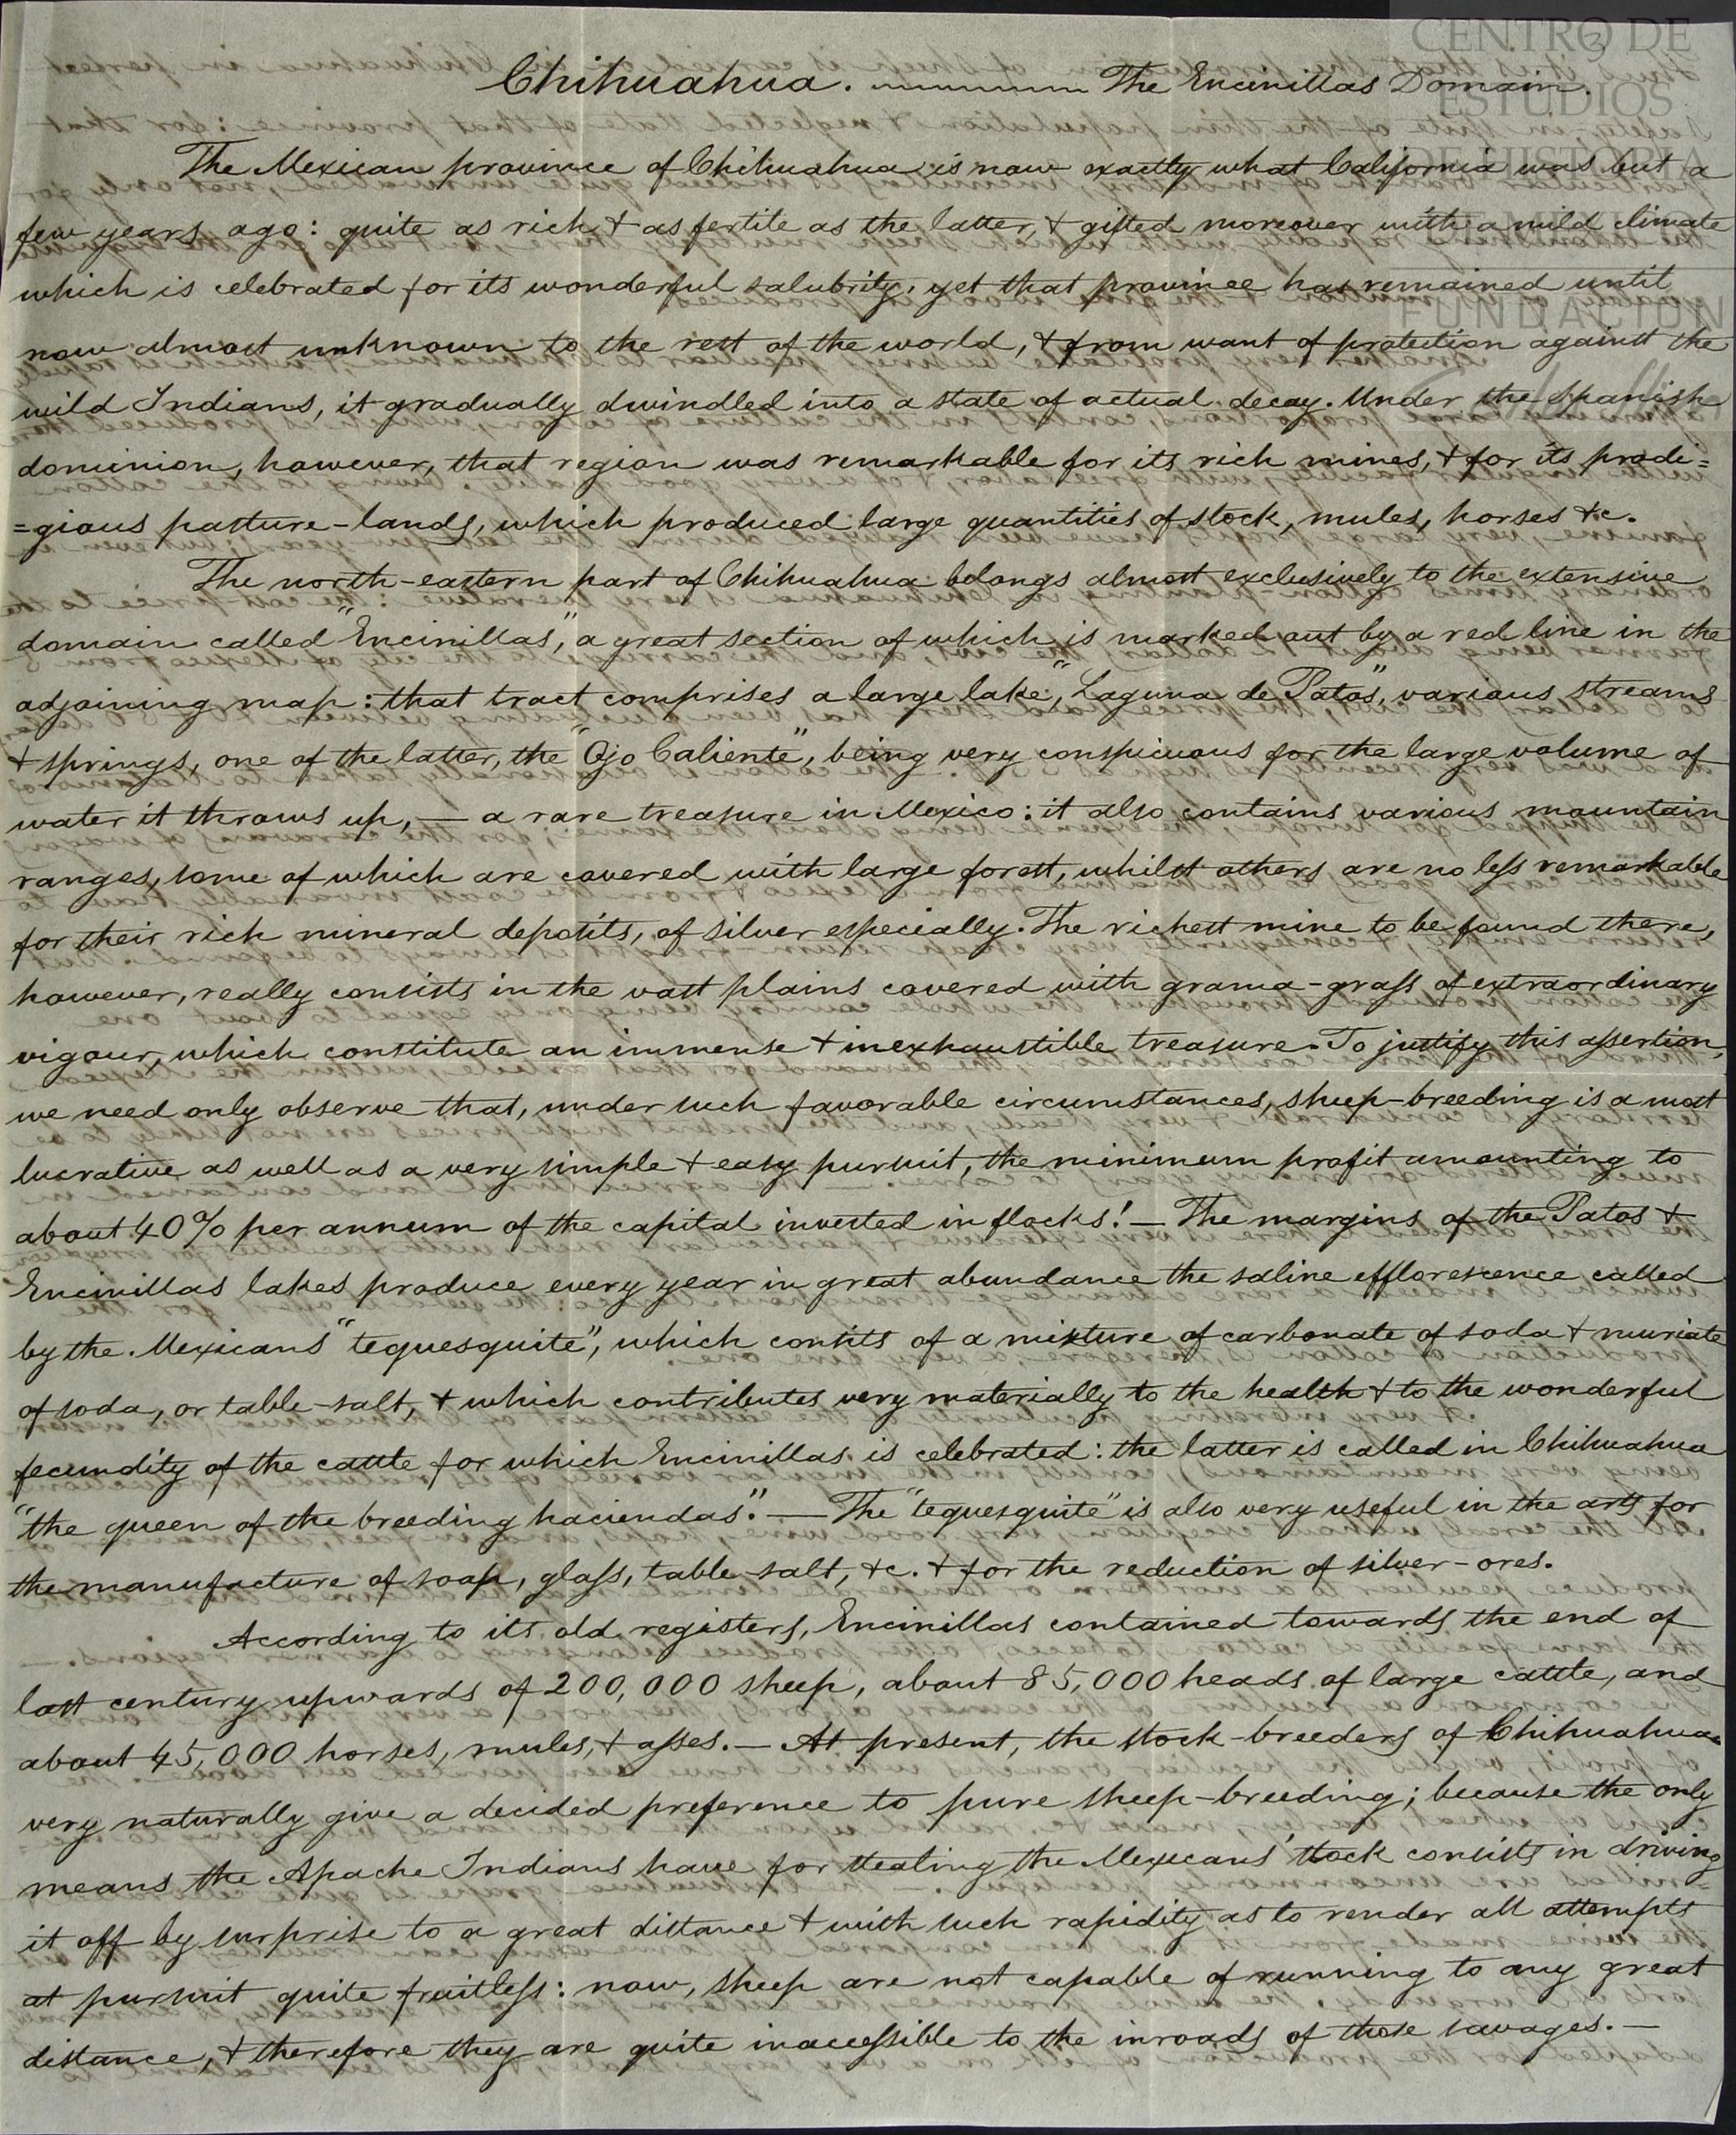 CENTRO DE
ESTUDIOS
DE HISTORIA
FUNDACIÓN
3
Chihuahua. The Encinillas Domain.
The Mexican province of Chihuahua is now exactly what California was but a
few years ago: quite as rich & as fertile as the latter, & gifted moreover with a mild climate
which is celebrated for its wonderful salubrity, yet that province has remained until
now almost unknown to the rest of the world, & from want of protection against the
wild Indians, it gradually dwindled into a state of actual decay. Under the Spanish
dominion, however, that region was remarkable for its rich mines, & for its prodi=
=gious pasture-lands, which produced large quantities of stock, mules, horses &c.
The north-eastern part of Chihuahua belongs almost exclusively to the extensive
domain called "Encinillas," a great section of which is marked out by a red line in the
adjoining map: that tract comprises a large lake, "Laguna de Patos", various streams
& springs, one of the latter, the "Ojo Caliente", being very conspicuous for the large volume of
water it throws up, — a rare treasure in Mexico: it also contains various mountain
ranges, some of which are covered with large forest, whilst others are no less remarkable
for their rich mineral deposits, of silver especially. The richest mine to be found there,
however, really consists in the vast plains covered with grama-grass of extraordinary
vigour, which constitute an immense & inexhaustible treasure. To justify this assertion,
we need only observe that, under such favorable circumstances, sheep-breeding is a most
lucrative as well as a very simple & easy pursuit, the minimum profit amounting to
about 40% per annum of the capital invested in flocks! — The margins of the Patos &
Encinillas lakes produce every year in great abundance the saline efflorescence called
by the Mexicans "tequesquite", which consits of a mixture of carbonate of soda & muriate
of soda, or table-salt, & which contributes very materially to the health & to the wonderful
fecundity of the cattle for which Encinillas is celebrated: the latter is called in Chihuahua
"the queen of the breeding haciendas". — The "tequesquite" is also very useful in the arts for
the manufacture of soap, glass, table-salt, &c. & for the reduction of silver-ores.
According to its old registers, Encinillas contained towards the end of
last century upwards of 200,000 sheep, about 85,000 heads of large cattle, and
about 45,000 horses, mules, & asses. — At present, the stock-breeders of Chihuahua
very naturally give a decided preference to pure sheep-breeding; because the only
means the Apache Indians have for stealing the Mexicans' stock consists in driving
it off by surprise to a great distance & with such rapidity as to render all attempts
at pursuit quite fruitless: now, sheep are not capable of running to any great
distance, & therefore they are quite inaccessible to the inroads of those savages. —